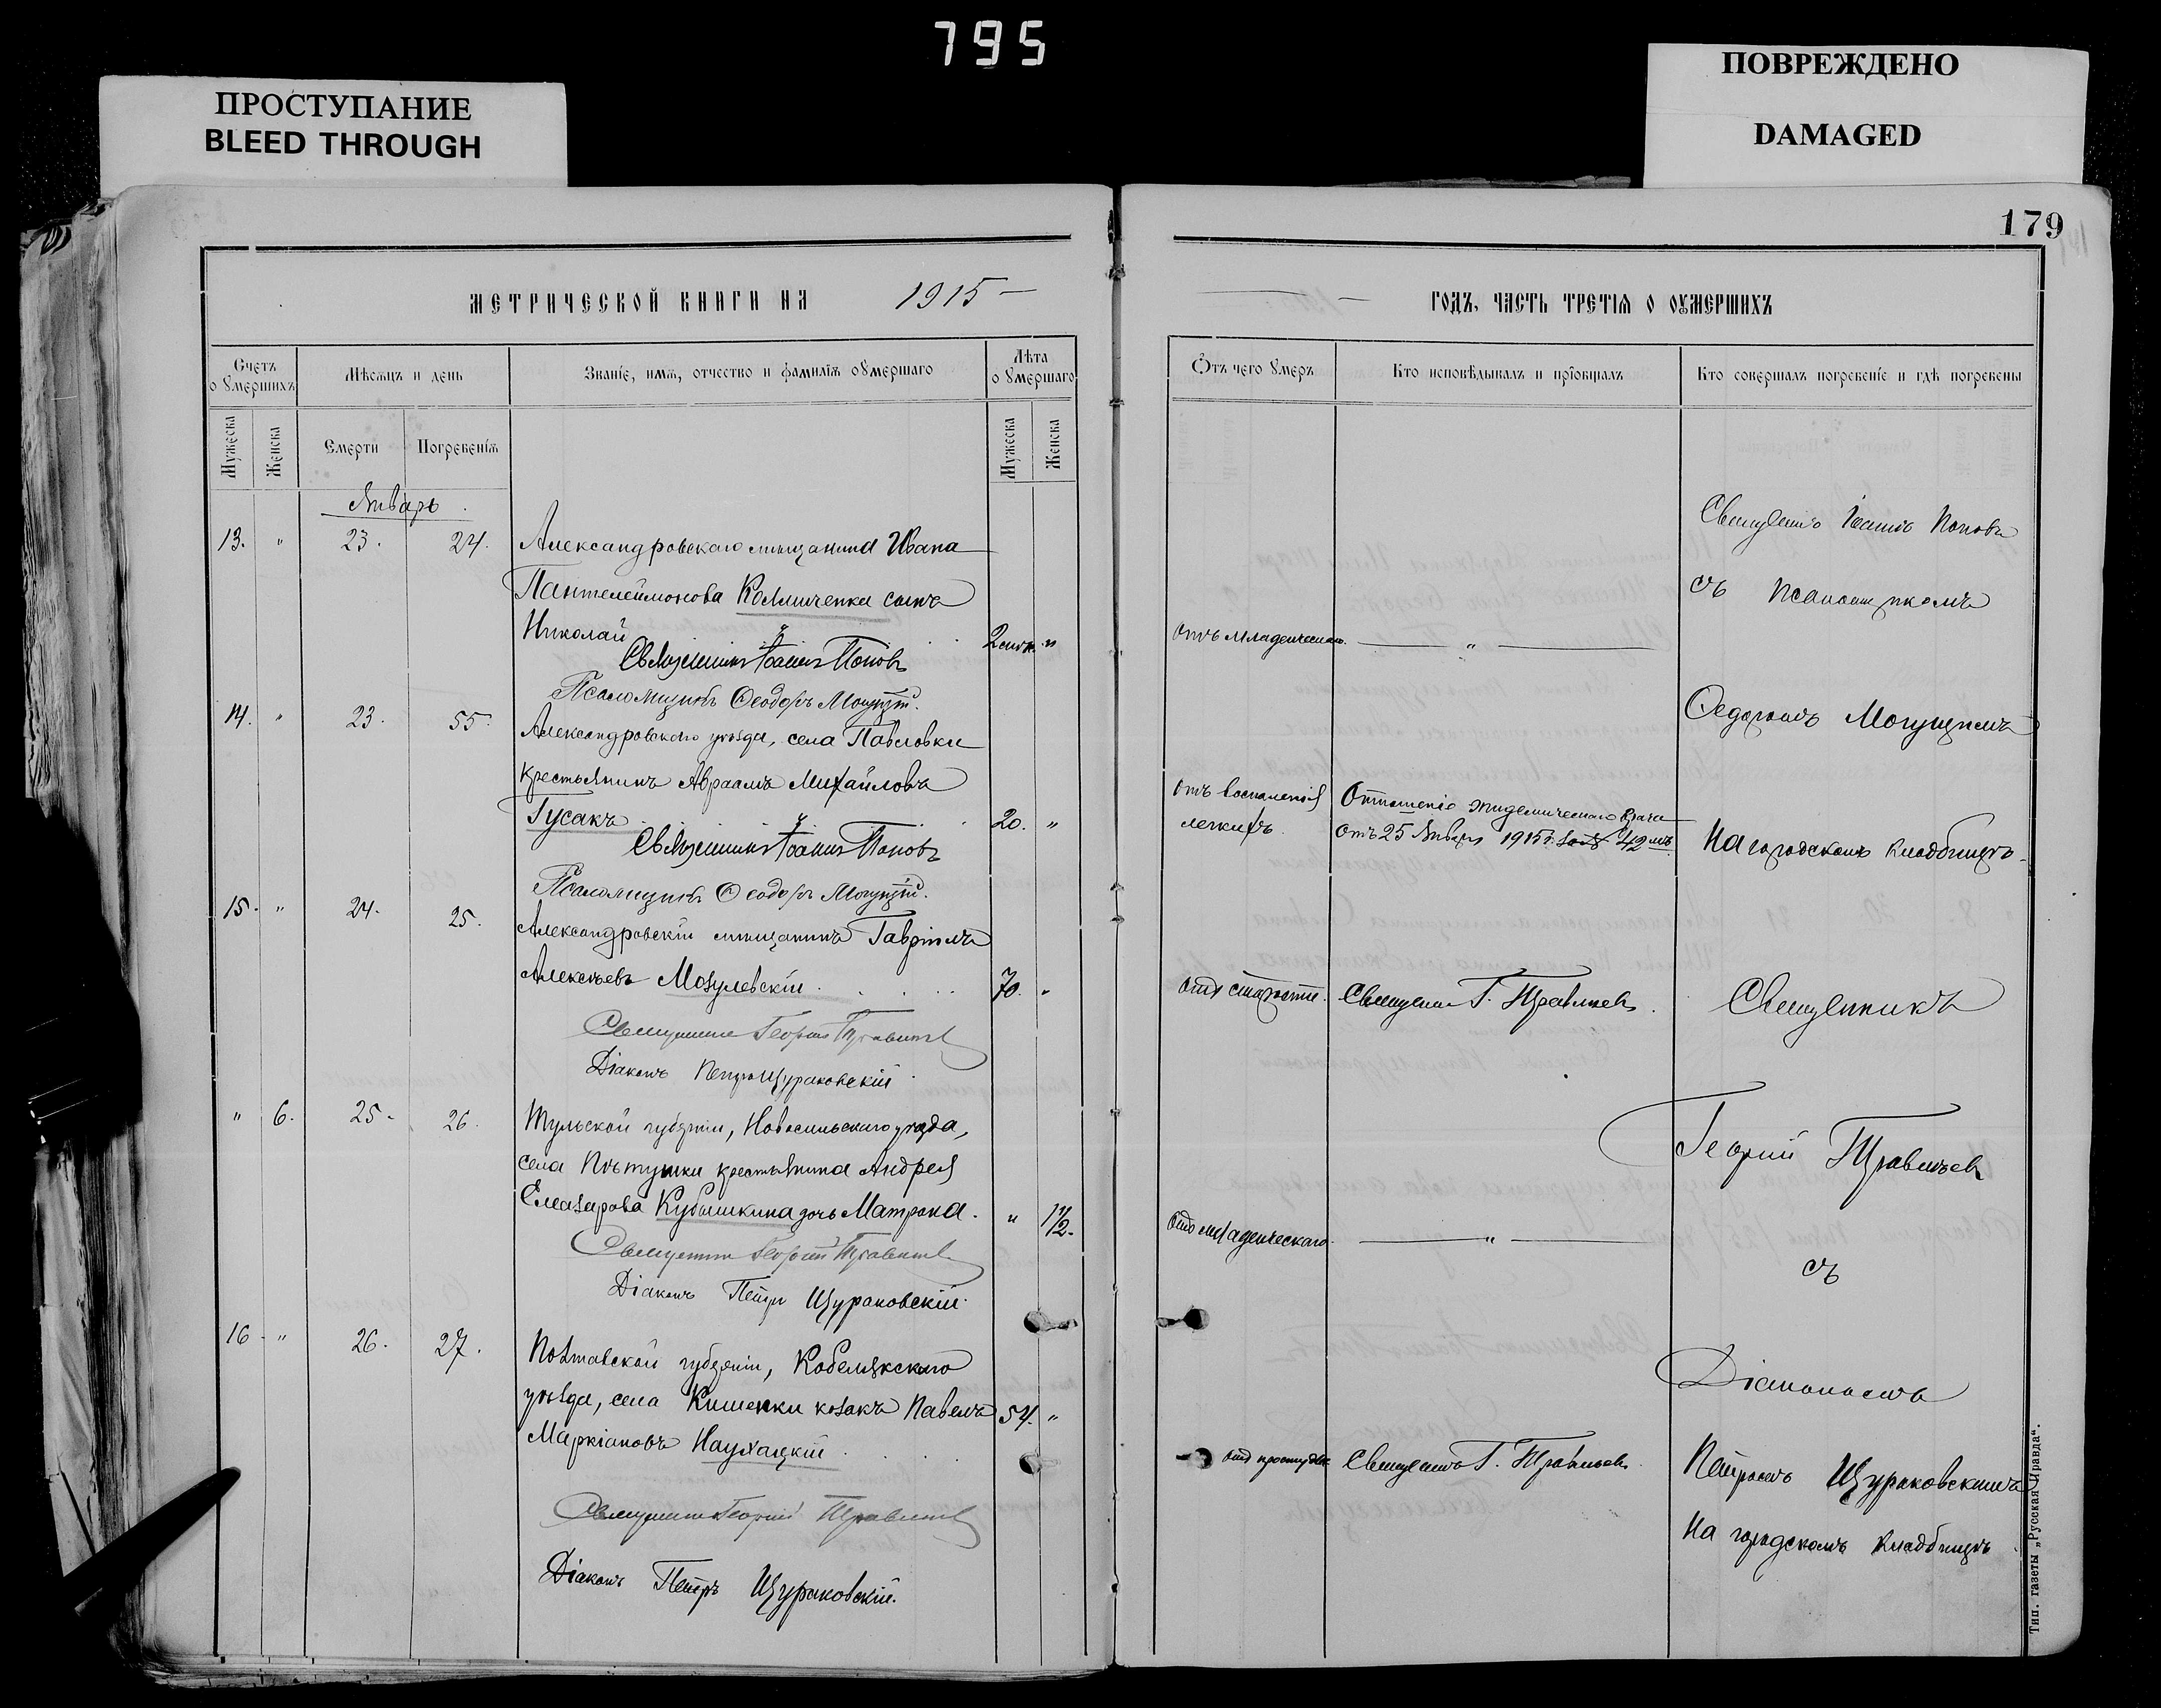 795
ПРОСТУПАНИЕ
BLEED THROUGH
ПОВРЕЖДЕНО
DAMAGED
179
МЕТРИЧЕСКОЙ КНИГИ НА 1915
ГОДЪ, ЧАСТЬ ТРЕТІЯ О ОУМЕРШИХЪ
Счетъ о умершихъ
Мѣсяцъ и день
Званіе, имя, отчество и фамилія оумершаго
Лѣта оумершаго
Отъ чего умеръ
Кто исповѣдывалъ и пріобщалъ
Кто совершалъ погребеніе и гдѣ погребены
Мужеска
Женска
Смерти
Погребенія
Мужеска
Женска
Январь
13. " 23. 24. Александровскаго мѣщанина Ивана
Пантелеймонова Колниченки сынъ
Николай 2 " Отъ младенческаго. "
Священникъ Іоаннъ Поповъ
Псаломщикъ Ѳеодоръ Могущій.
Священникъ Іоаннъ Поповъ
съ псаломщикомъ
Ѳедоромъ Могущимъ
На городскомъ кладбищѣ.
14. " 23. 55. Александровскаго уѣзда, села Павловки
крестьянинъ Авраамъ Михайловъ
Гусакъ 20. "
Отъ воспаленія
легкихъ.
Отношеніе эпидемическаго врача
отъ 25 Января 1915 г. за № 42мъ
Священникъ Іоаннъ Поповъ
Псаломщикъ Ѳеодоръ Могущій.
15. " 24. 25. Александровскій мѣщанинъ Гавріилъ
Алексѣевъ Мозулевскій 70. " Отъ старости. Священникъ Г.
Священникъ Георгій
Діаконъ Петръ Щураковскій
" 6. 25. 26. Тульской губерніи, Новосильскаго уѣзда,
села Пѣтушки крестьянина Андрея
Елазарова Кубышкина дочь Матрона. " 1 1/2. Отъ младенческаго. "
Священникъ Георгій
Діаконъ Петръ Щураковскій.
16. " 26. 27. Полтавской губерніи, Кобелякскаго
уѣзда, села Кишенки козакъ Павелъ 54. "
Маркіановъ Наумацкій
отъ простуды Священникъ Г.
Священникъ Георгій
Діаконъ Петръ Щураковскій.
Священникъ
Георгій
съ
Діакономъ
Петромъ Щураковскимъ
На городскомъ кладбищѣ
Тип. газеты „Русская Правда“.